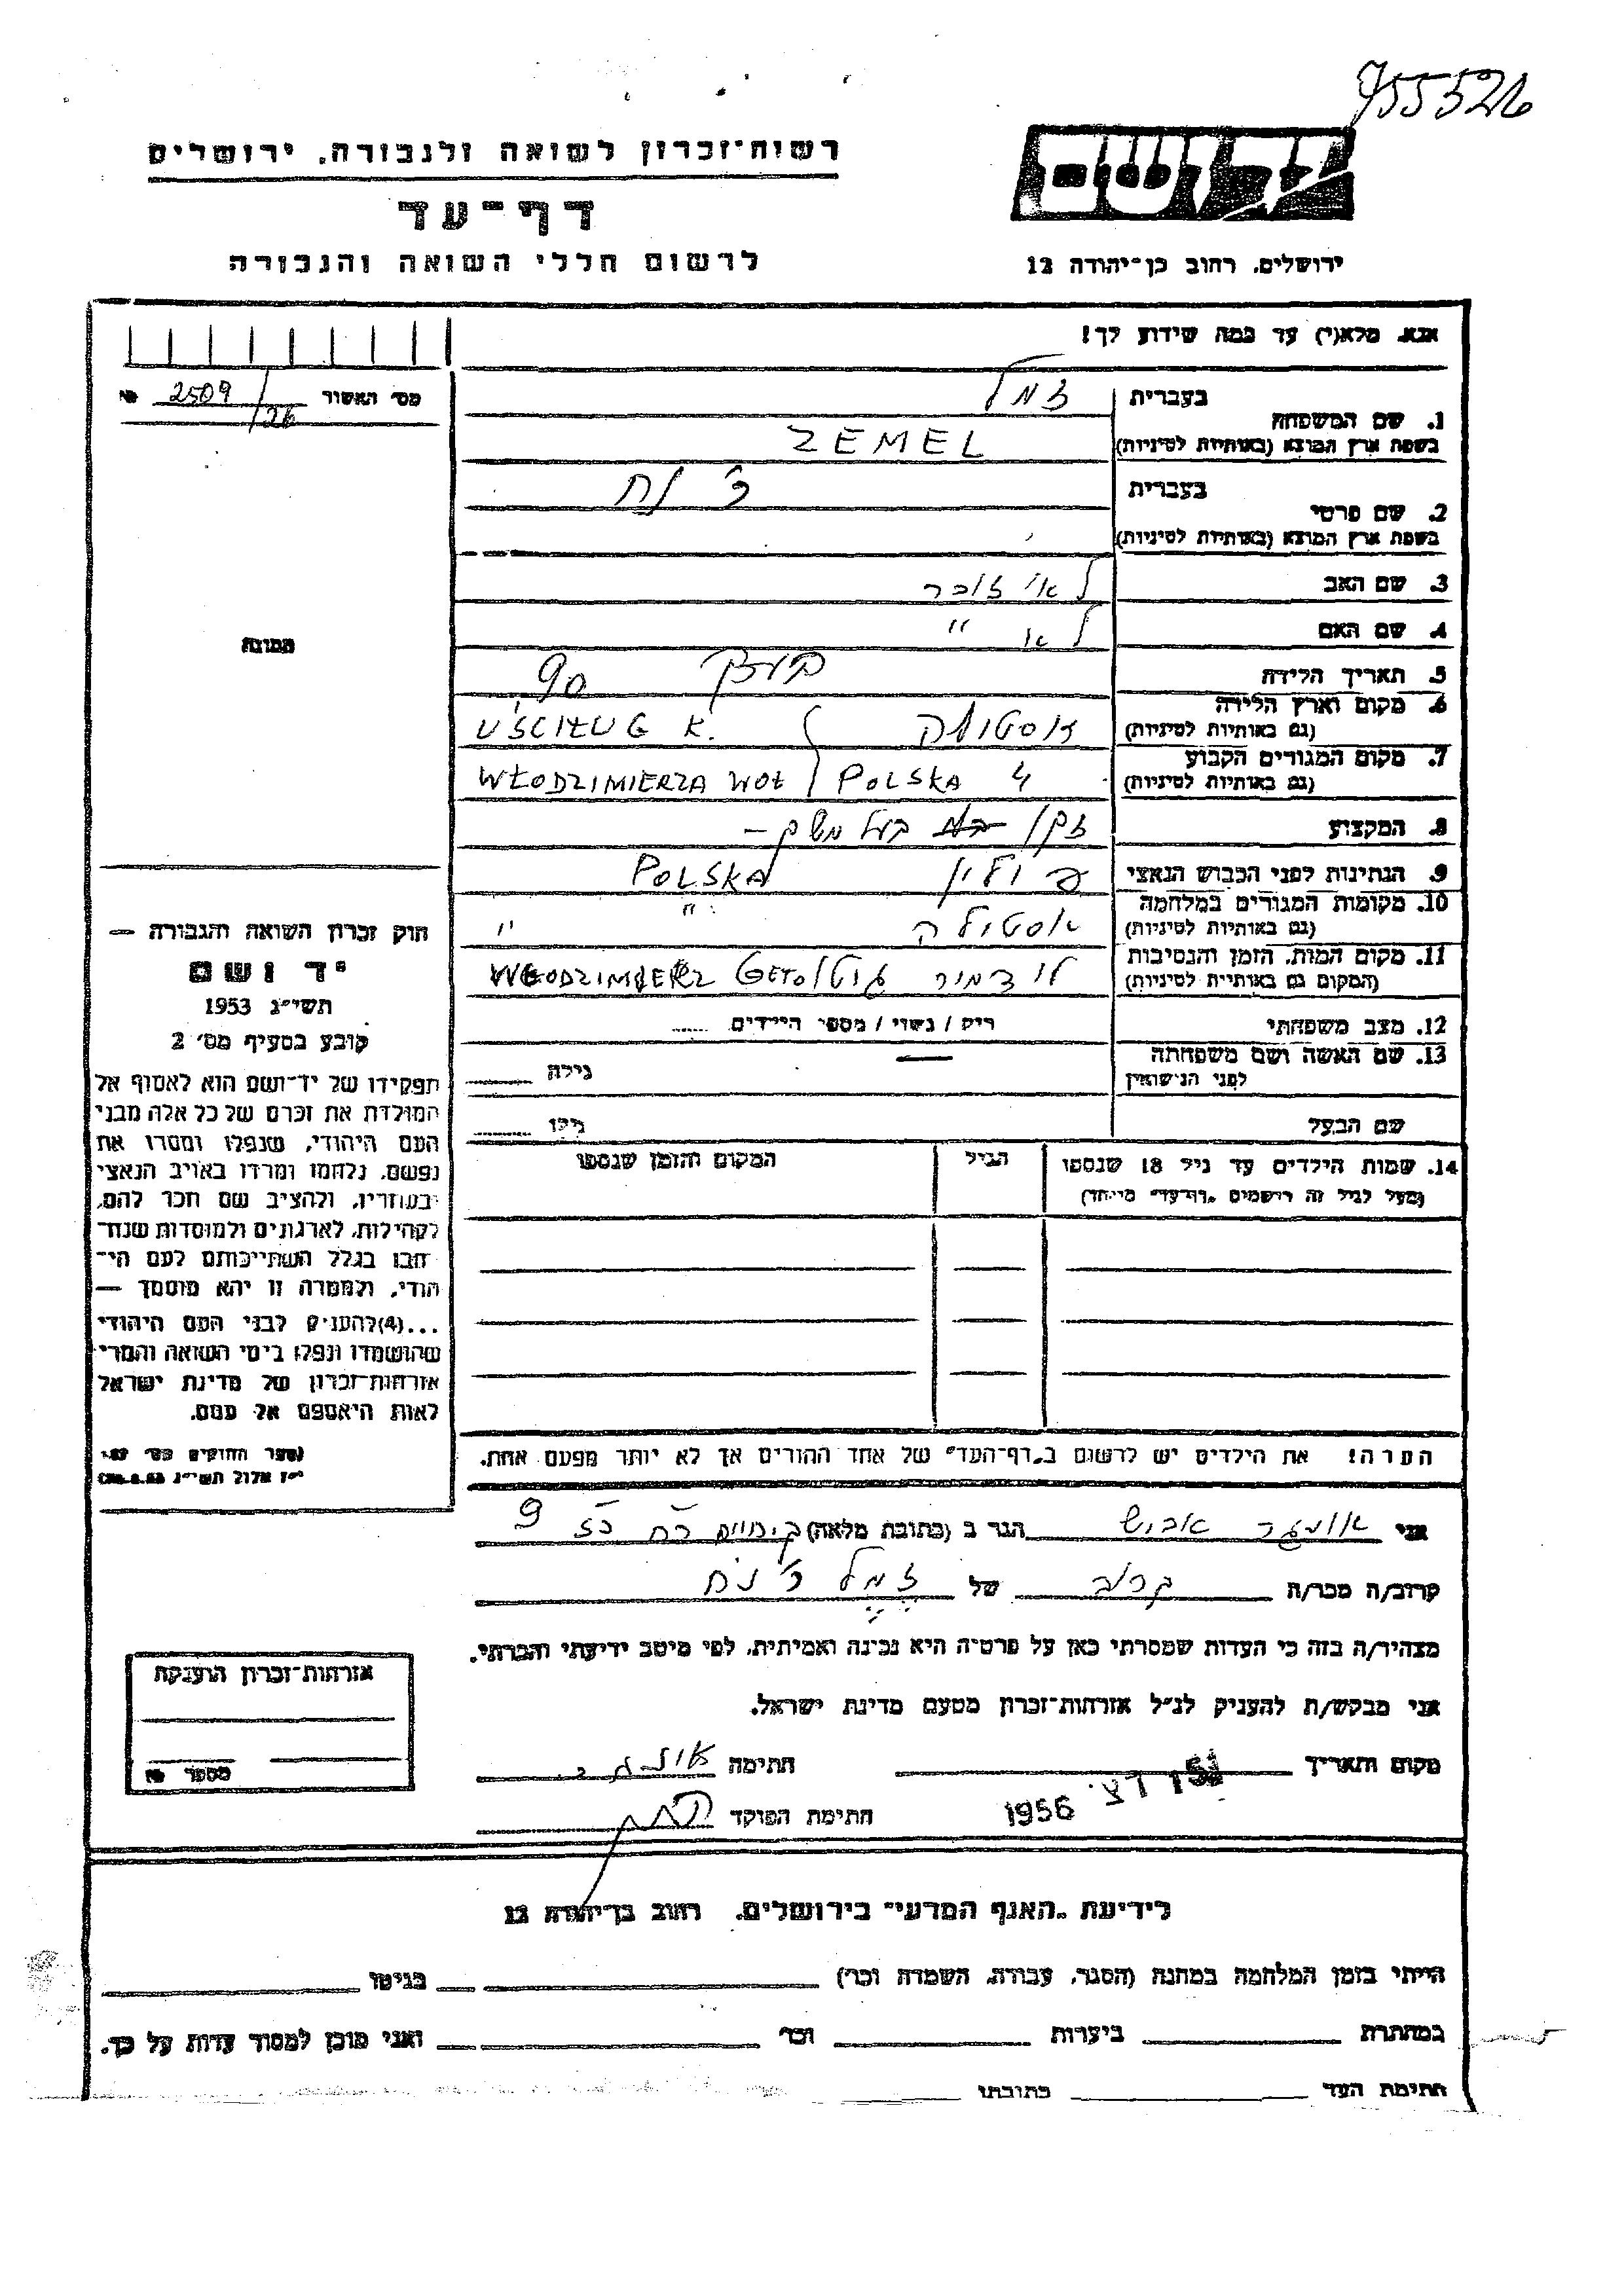 755526
רשות־זכרון לשואה ולגבורה, ירושלים
דף־עד
לרשום חללי השואה והגבורה
יד ושם
ירושלים, רחוב בן־יהודה 12
אנא, מלא(י) עד כמה שידוע לך!
מס׳ האשור 2509/26 №
1. שם המשפחה
בעברית זמל
בשפת ארץ המוצא (באותיות לטיניות) ZEMEL
2. שם פרטי
בעברית
בשפת ארץ המוצא (באותיות לטיניות)
3. שם האב לא זוכר
4. שם האם לא "
5. תאריך הלידה בערך 90
6. מקום וארץ הלידה
(גם באותיות לטיניות) UŚCIŁUG K.
7. מקום המגורים הקבוע
(גם באותיות לטיניות) POLSKA WŁODZIMIERZA WOŁ
8. המקצוע
9. הנתינות לפני הכבוש הנאצי פולין POLSKA
10. מקומות המגורים במלחמה
(גם באותיות לטיניות) אוסטילה " "
11. מקום המות, הזמן והנסיבות
(המקום גם באותיות לטיניות) WŁODZIMIERZ GETO
12. מצב משפחתי רוק / נשוי / מספר הילדים ......
13. שם האשה ושם משפחתה
לפני הנישואין גילה
שם הבעל גילו
14. שמות הילדים עד גיל 18 שנספו
(מעל לגיל זה רושמים „דף־עד" מיוחד)
הגיל
המקום והזמן שנספו
הערה! את הילדים יש לרשום ב„דף־העד" של אחד ההורים אך לא יותר מפעם אחת.
תמונה
חוק זכרון השואה והגבורה —
יד ושם
תשי״ג 1953
קובע בסעיף מס׳ 2
תפקידו של יד־ושם הוא לאסוף אל
המולדת את זכרם של כל אלה מבני
העם היהודי, שנפלו ומסרו את
נפשם, נלחמו ומרדו באויב הנאצי
ובעוזריו, ולהציב שם וזכר להם,
לקהילות, לארגונים ולמוסדות שנח־
רבו בגלל השתייכותם לעם הי־
הודי, ולמטרה זו יהא מוסמך —
...(4) להעניק לבני העם היהודי
שהושמדו ונפלו בימי השואה והמרי
אזרחות־זכרון של מדינת ישראל
לאות היאספם אל עמם.
אני הגר ב (כתובת מלאה)
קרוב/ה מכר/ה קרוב של זמל
מצהיר/ה בזה כי העדות שמסרתי כאן על פרטיה היא נכונה ואמיתית, לפי מיטב ידיעתי והכרתי.
אני מבקש/ת להעניק לנ״ל אזרחות־זכרון מטעם מדינת ישראל.
מקום ותאריך חתימה
1956
חתימת הפוקד
אזרחות־זכרון הוענקה
מספר №
לידיעת „האגף המדעי" בירושלים, רחוב בן־יהודה 12
הייתי בזמן המלחמה במחנה (הסגר, עבודה, השמדה וכו׳) בגיטו
במחתרת ביערות וכו׳ ואני מוכן למסור עדות על כך.
חתימת העד כתובתו